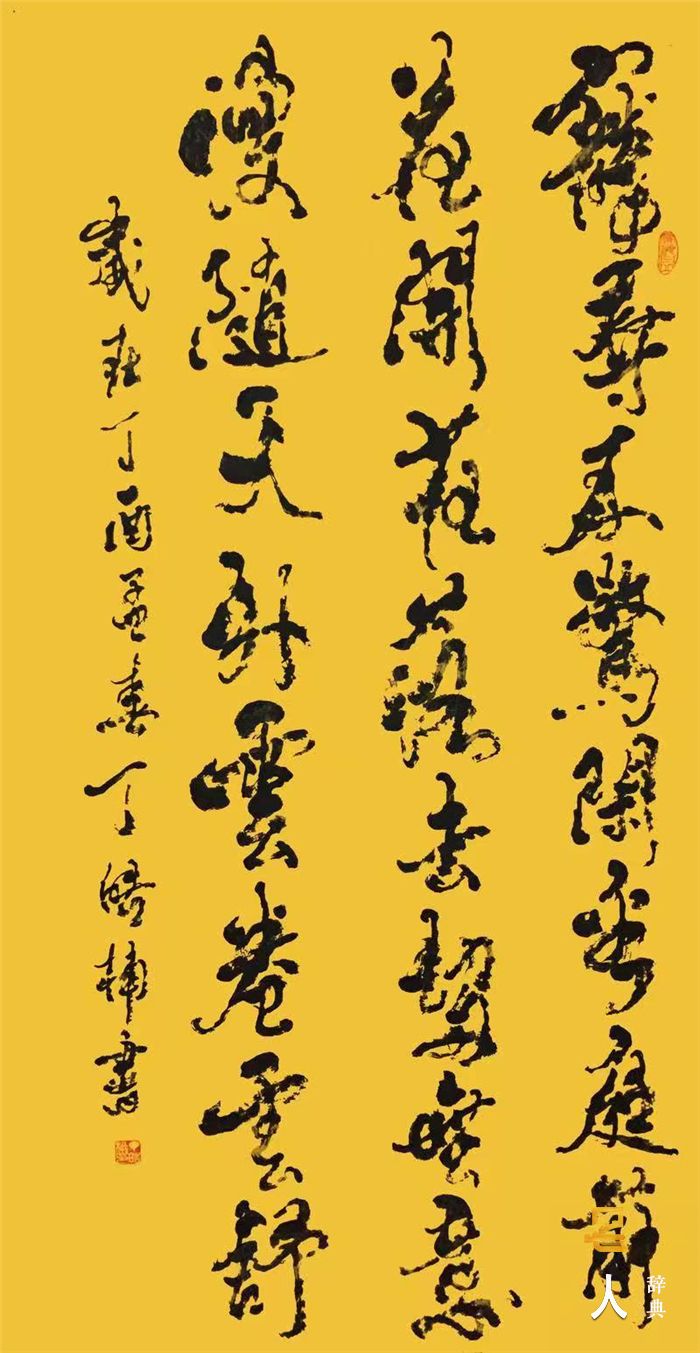 寵辱不驚閒看庭前
花開花落去留無意
漫隨天外雲卷雲舒
歲在丁酉孟春丁 書
名人辞典